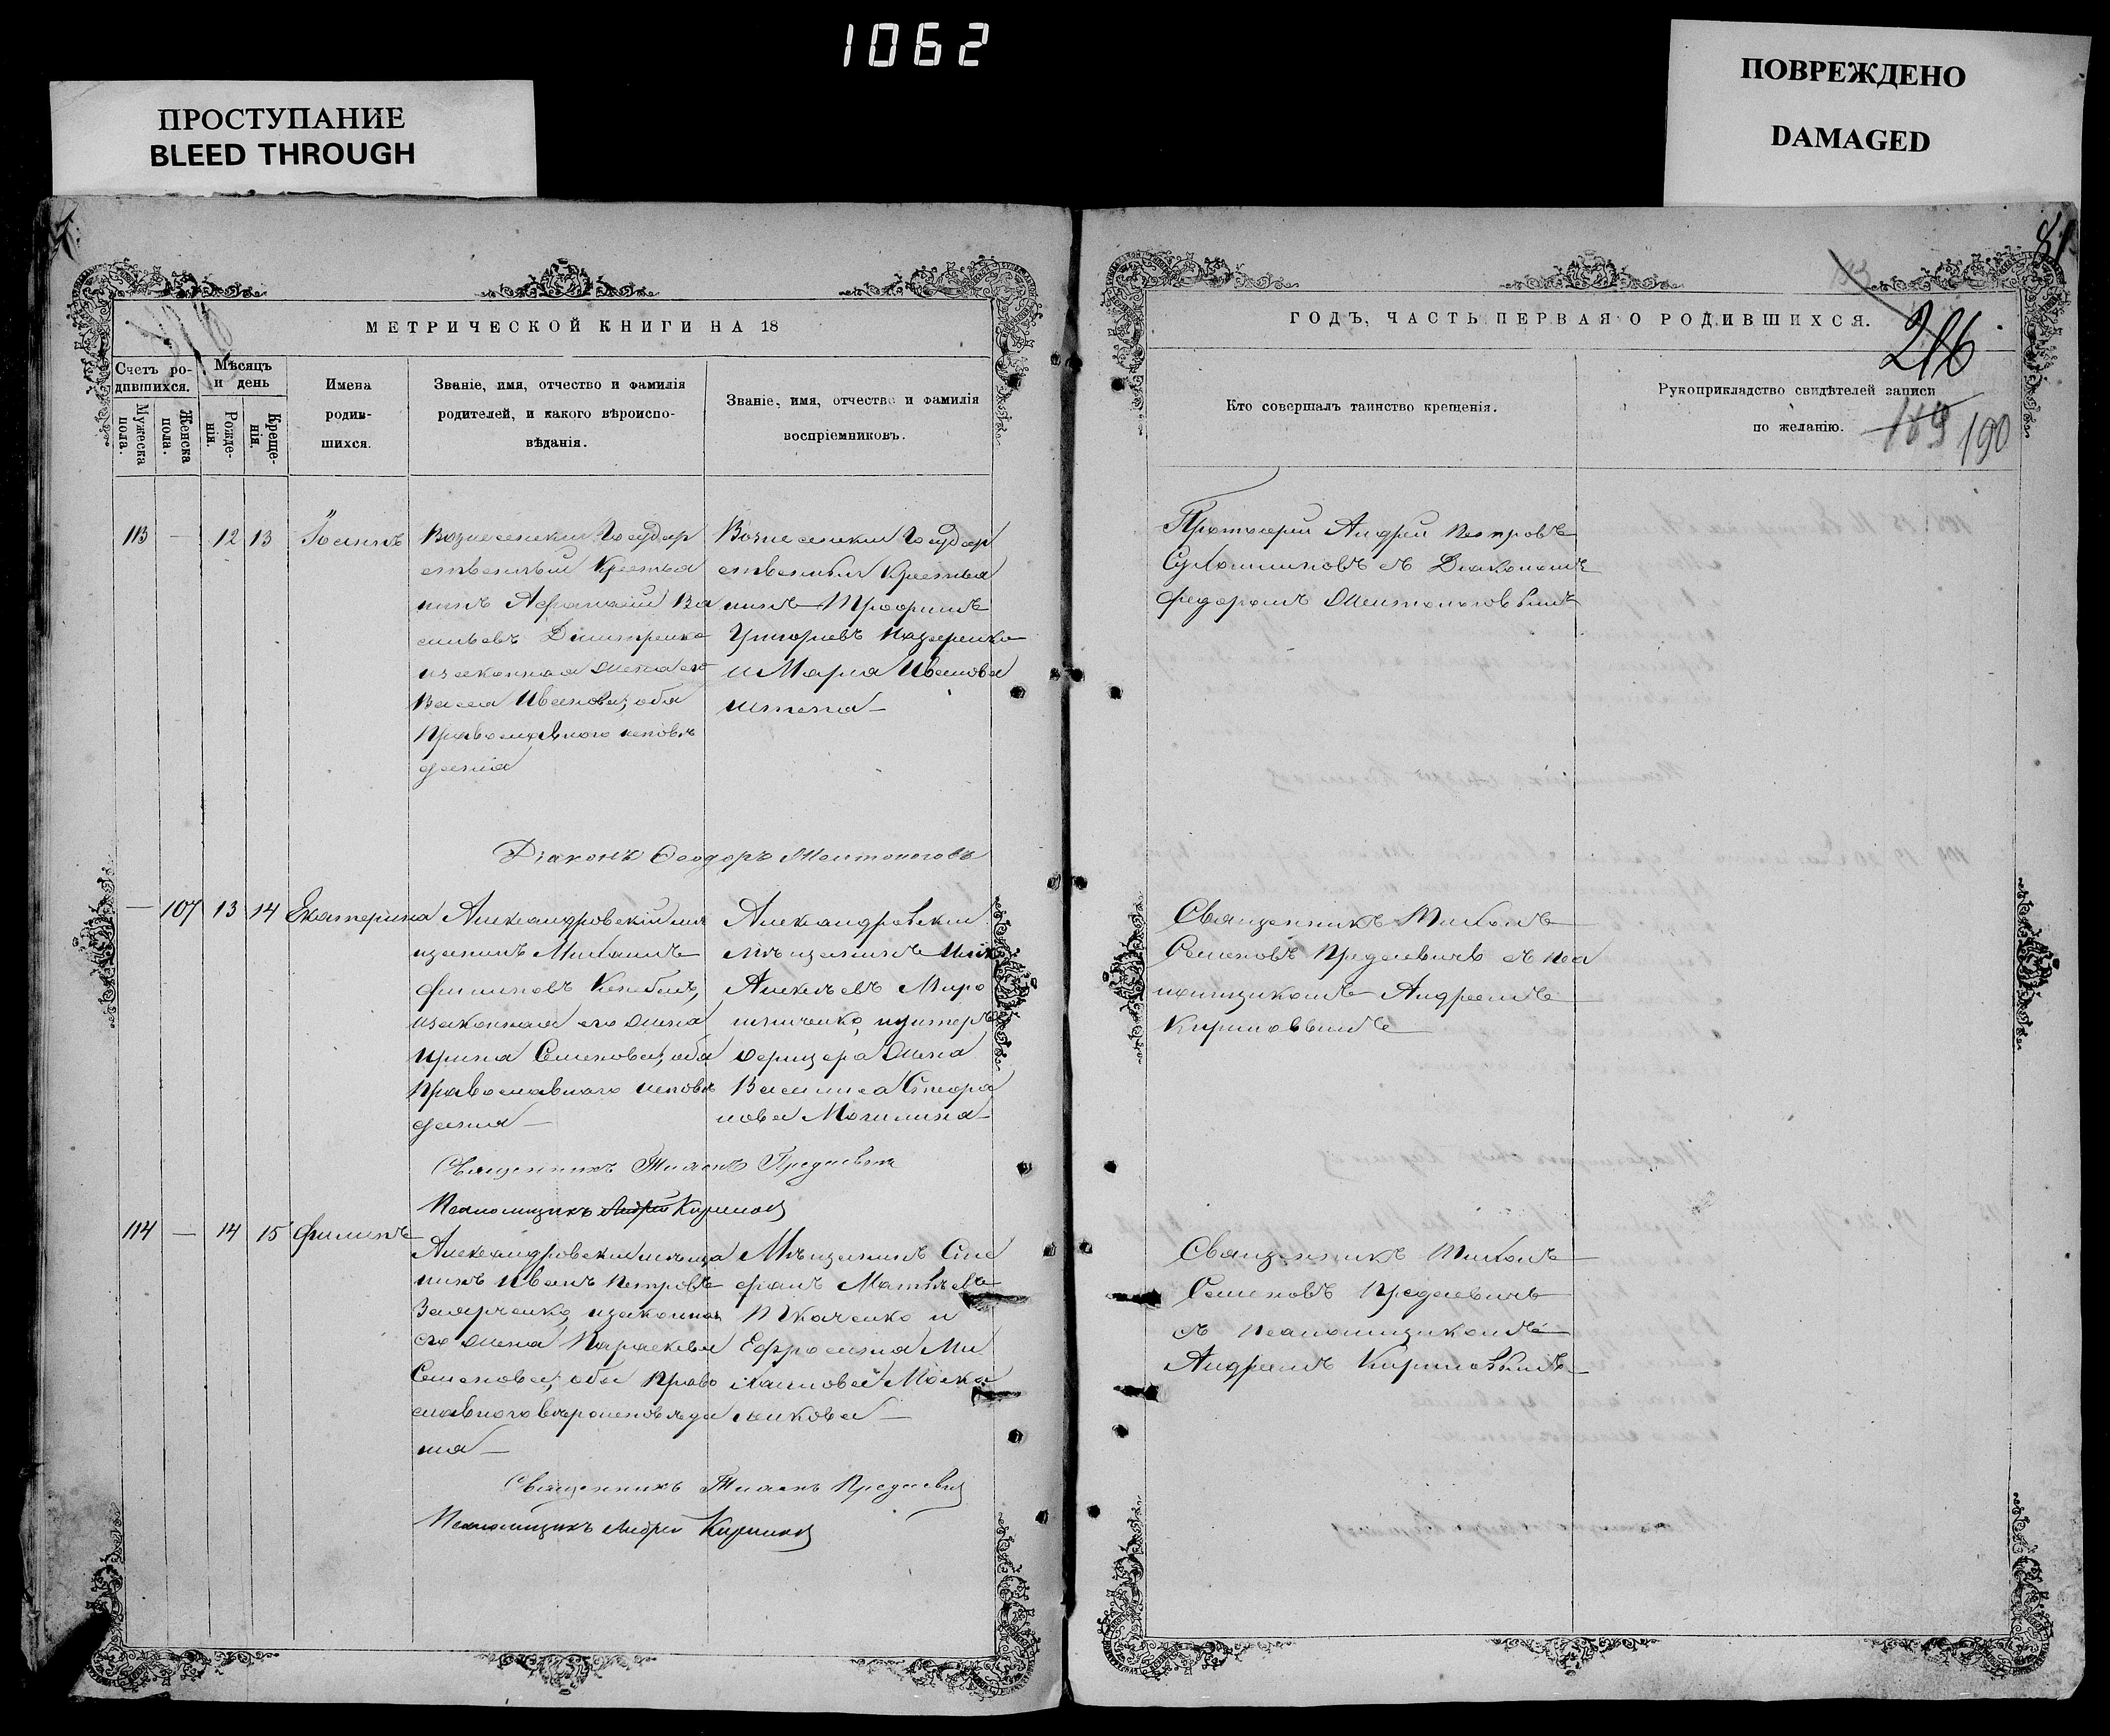 1062
ПРОСТУПАНИЕ
BLEED THROUGH
ПОВРЕЖДЕНО
DAMAGED
МЕТРИЧЕСКОЙ КНИГИ НА 18
Счетъ ро-
дившихся.
Мужеска
пола.
Женска
пола.
Мѣсяцъ
и день
Рожде-
нія.
Креще-
нія.
Имена
родив-
шихся.
Званіе, имя, отчество и фамилія
родителей, и какого вѣроиспо-
вѣданія.
Званіе, имя, отчество и фамилія
воспріемниковъ.
113 — 12 13 Іоаннъ
Вознесенскій Государ
ственный Крестья
нинъ Афанасій Ва
сильевъ Дмитренко
и законная жена его
Васса Иванова, оба
Православного исповѣ
данія
Вознесенскій Государ
ственный Крестья
нинъ Трофимъ
Григорьевъ Назаренко
и Марія Иванова
Діаконъ Ѳеодоръ Желтоноговъ
— 107 13 14 Екатерина
Александровскій мѣ
щанинъ Михаилъ
Филиповъ
законная его жена
Ирина Семенова, оба
Православнаго исповѣ
данія —
Александровскій
мѣщанинъ
Алексѣевъ Миро
шниченко, и унтеръ
офицера жена
Василиса Стефа
нова Могилина —
Священникъ Тихонъ Предаевичъ
Псаломщикъ Андрей Кириловъ
114 — 14 15 Филипъ
Александровскій мѣща
нинъ Иванъ Петровъ
законная
его жена Параскева
Семенова, оба Право
славного вѣроисповѣда
нія —
Мѣщанинъ Сте
фанъ Матвѣевъ
Ткаченко и
Ефросинія Ми
хайлова Моска
ленкова —
Священникъ Тихонъ Предаевичъ
Псаломщикъ Андрей Кириловъ
81
ГОДЪ, ЧАСТЬ ПЕРВАЯ О РОДИВШИХСЯ.
216
Кто совершалъ таинство крещенія.
Рукоприкладство свидѣтелей записи
по желанію.
189 190
Протоіерей Андрей Петровъ
Сухомлиновъ съ Діакономъ
Федоромъ Желтоноговымъ
Священникъ Тихонъ
Семеновъ Предаевичъ съ Пса
ломщикомъ Андреемъ
Кириловымъ
Священникъ Тихонъ
Семеновъ Предаевичъ
съ Псаломщикомъ
Андреемъ Кириловымъ